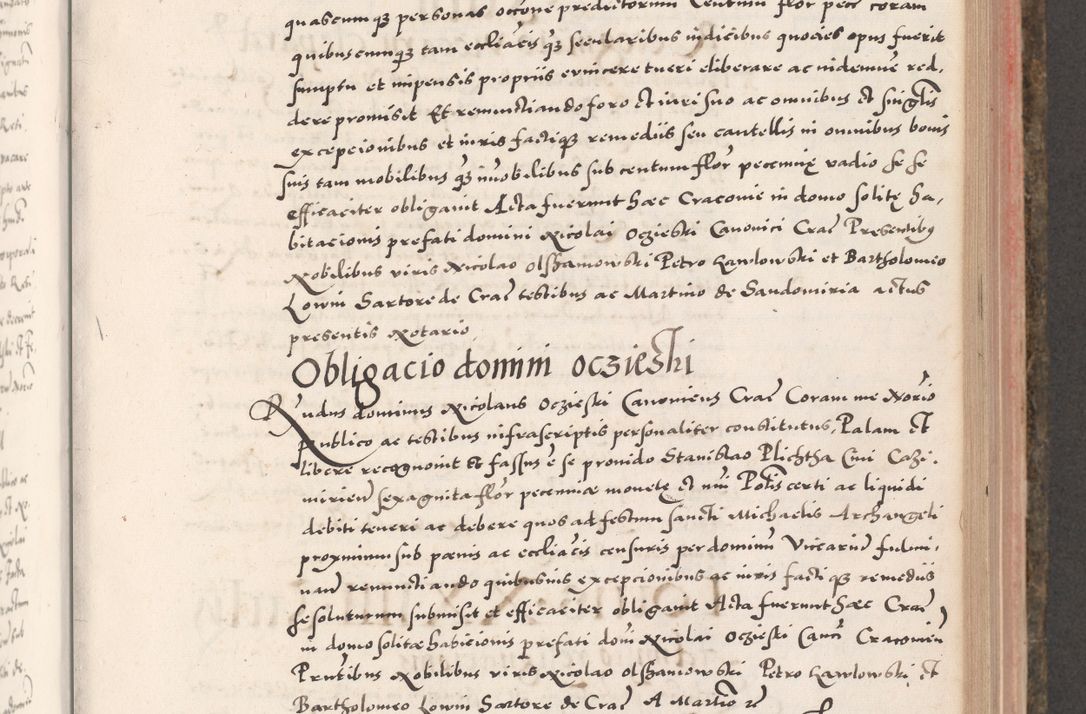 quascumqз personas occone predictorum Centum flor pecc coram
quibuscumqз tam eccliacis qз secularibus iudicibus quocies opus fuerit
sumptu et impensis propriis evincere tueri eliberare ac indemne red,
dere promisit Et renunctiando foro et iuri suo ac omnibus et singlis
excepcionibus et iuris factiqз remediis seu cautellis in omnibus bonis
suis tam mobilibus qз imobilibus sub centum flor pecunię vadio se se
efficaciter obligavit Acta fuerunt hæc Cracovie in domo solitę ha,
bitacionis prefati domini Nicolai Oczieski Canonici Crac Presentibus
Nobilibus viris Nicolao Olschamowski Petro Kawlowski et Bartholomeo
Lowin Sartore de Crac testibus ac Martino de Sandomiria actus
presentis Notario
Obligacio domini oczieski
Rndus dominus Nicolaus Oczieski Canonicus Crac Coram me Norio
publico ac testibus infrascriptis personaliter constitutus, Palam et
libere recognoivit Et fassus e se provido Stanislao Plichtha Civi Cazi,
mirien sexaginta flor pecuniæ monetę et nui Polis certi ac liquidi
debiti teneri ac debere quos ad festum sancti Michaelis Archangeli
proximum sub pœnis ac eccliacis censuris per dominum Vicarium fulmi,
nand renunctiando quibusvis excepcionibus ac iuris factiqз remediis
se soluturum submisit et efficaciter obligavit Acta fuerunt hæc Crac
in domo solitæ habicionis prefati domi Nicolai Oczieski Canci Cracovien
Prntibus Nobilibus viris Nicolao Olschamowski Petro Kawlowski, et
Bartholomeo Lowin Sartore de Crac A Martio